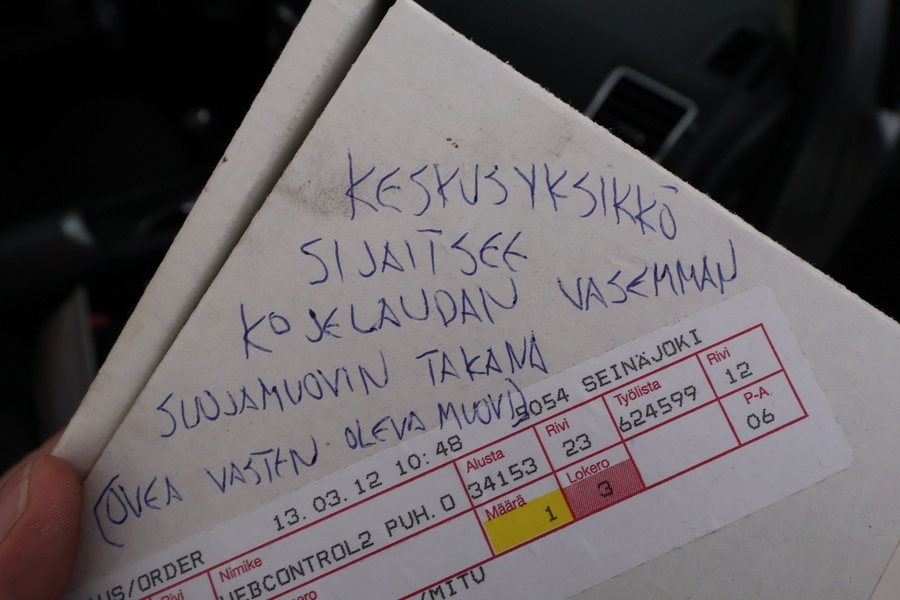 KESKUSYKSIKKÖ
SIJAITSEE
KOJELAUDAN VASEMMAN
SUOJAMUOVIN TAKANA
(OVEA VASTEN OLEVA MUOVI)
13.03.12 10:48 5054 SEINÄJOKI
US/ORDER
Alusta Rivi Työlista Rivi
34153 23 624599 12
Rivi Nimike Määrä Lokero P-A.
WEBCONTROL2 PUH.O 1 3 06
/MITU